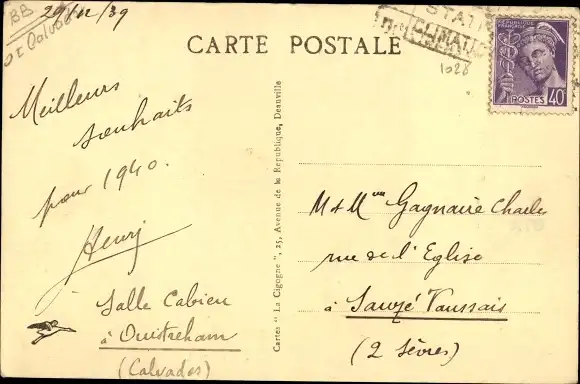 BB
29/12/39
CARTE POSTALE
STATI
CLIMATI
1028
RÉPUBLIQUE FRANÇAISE
POSTES 40
Meilleurs
souhaits
pour 1940.
Henry
Salle Cabieu
à Ouistreham
(Calvados)
Cartes "La Cigogne", 25, Avenue de la République, Deauville
M & Mme Gagnaire Charles
rue de l'Eglise
à Sauzé Vaussais
(2 Sèvres)